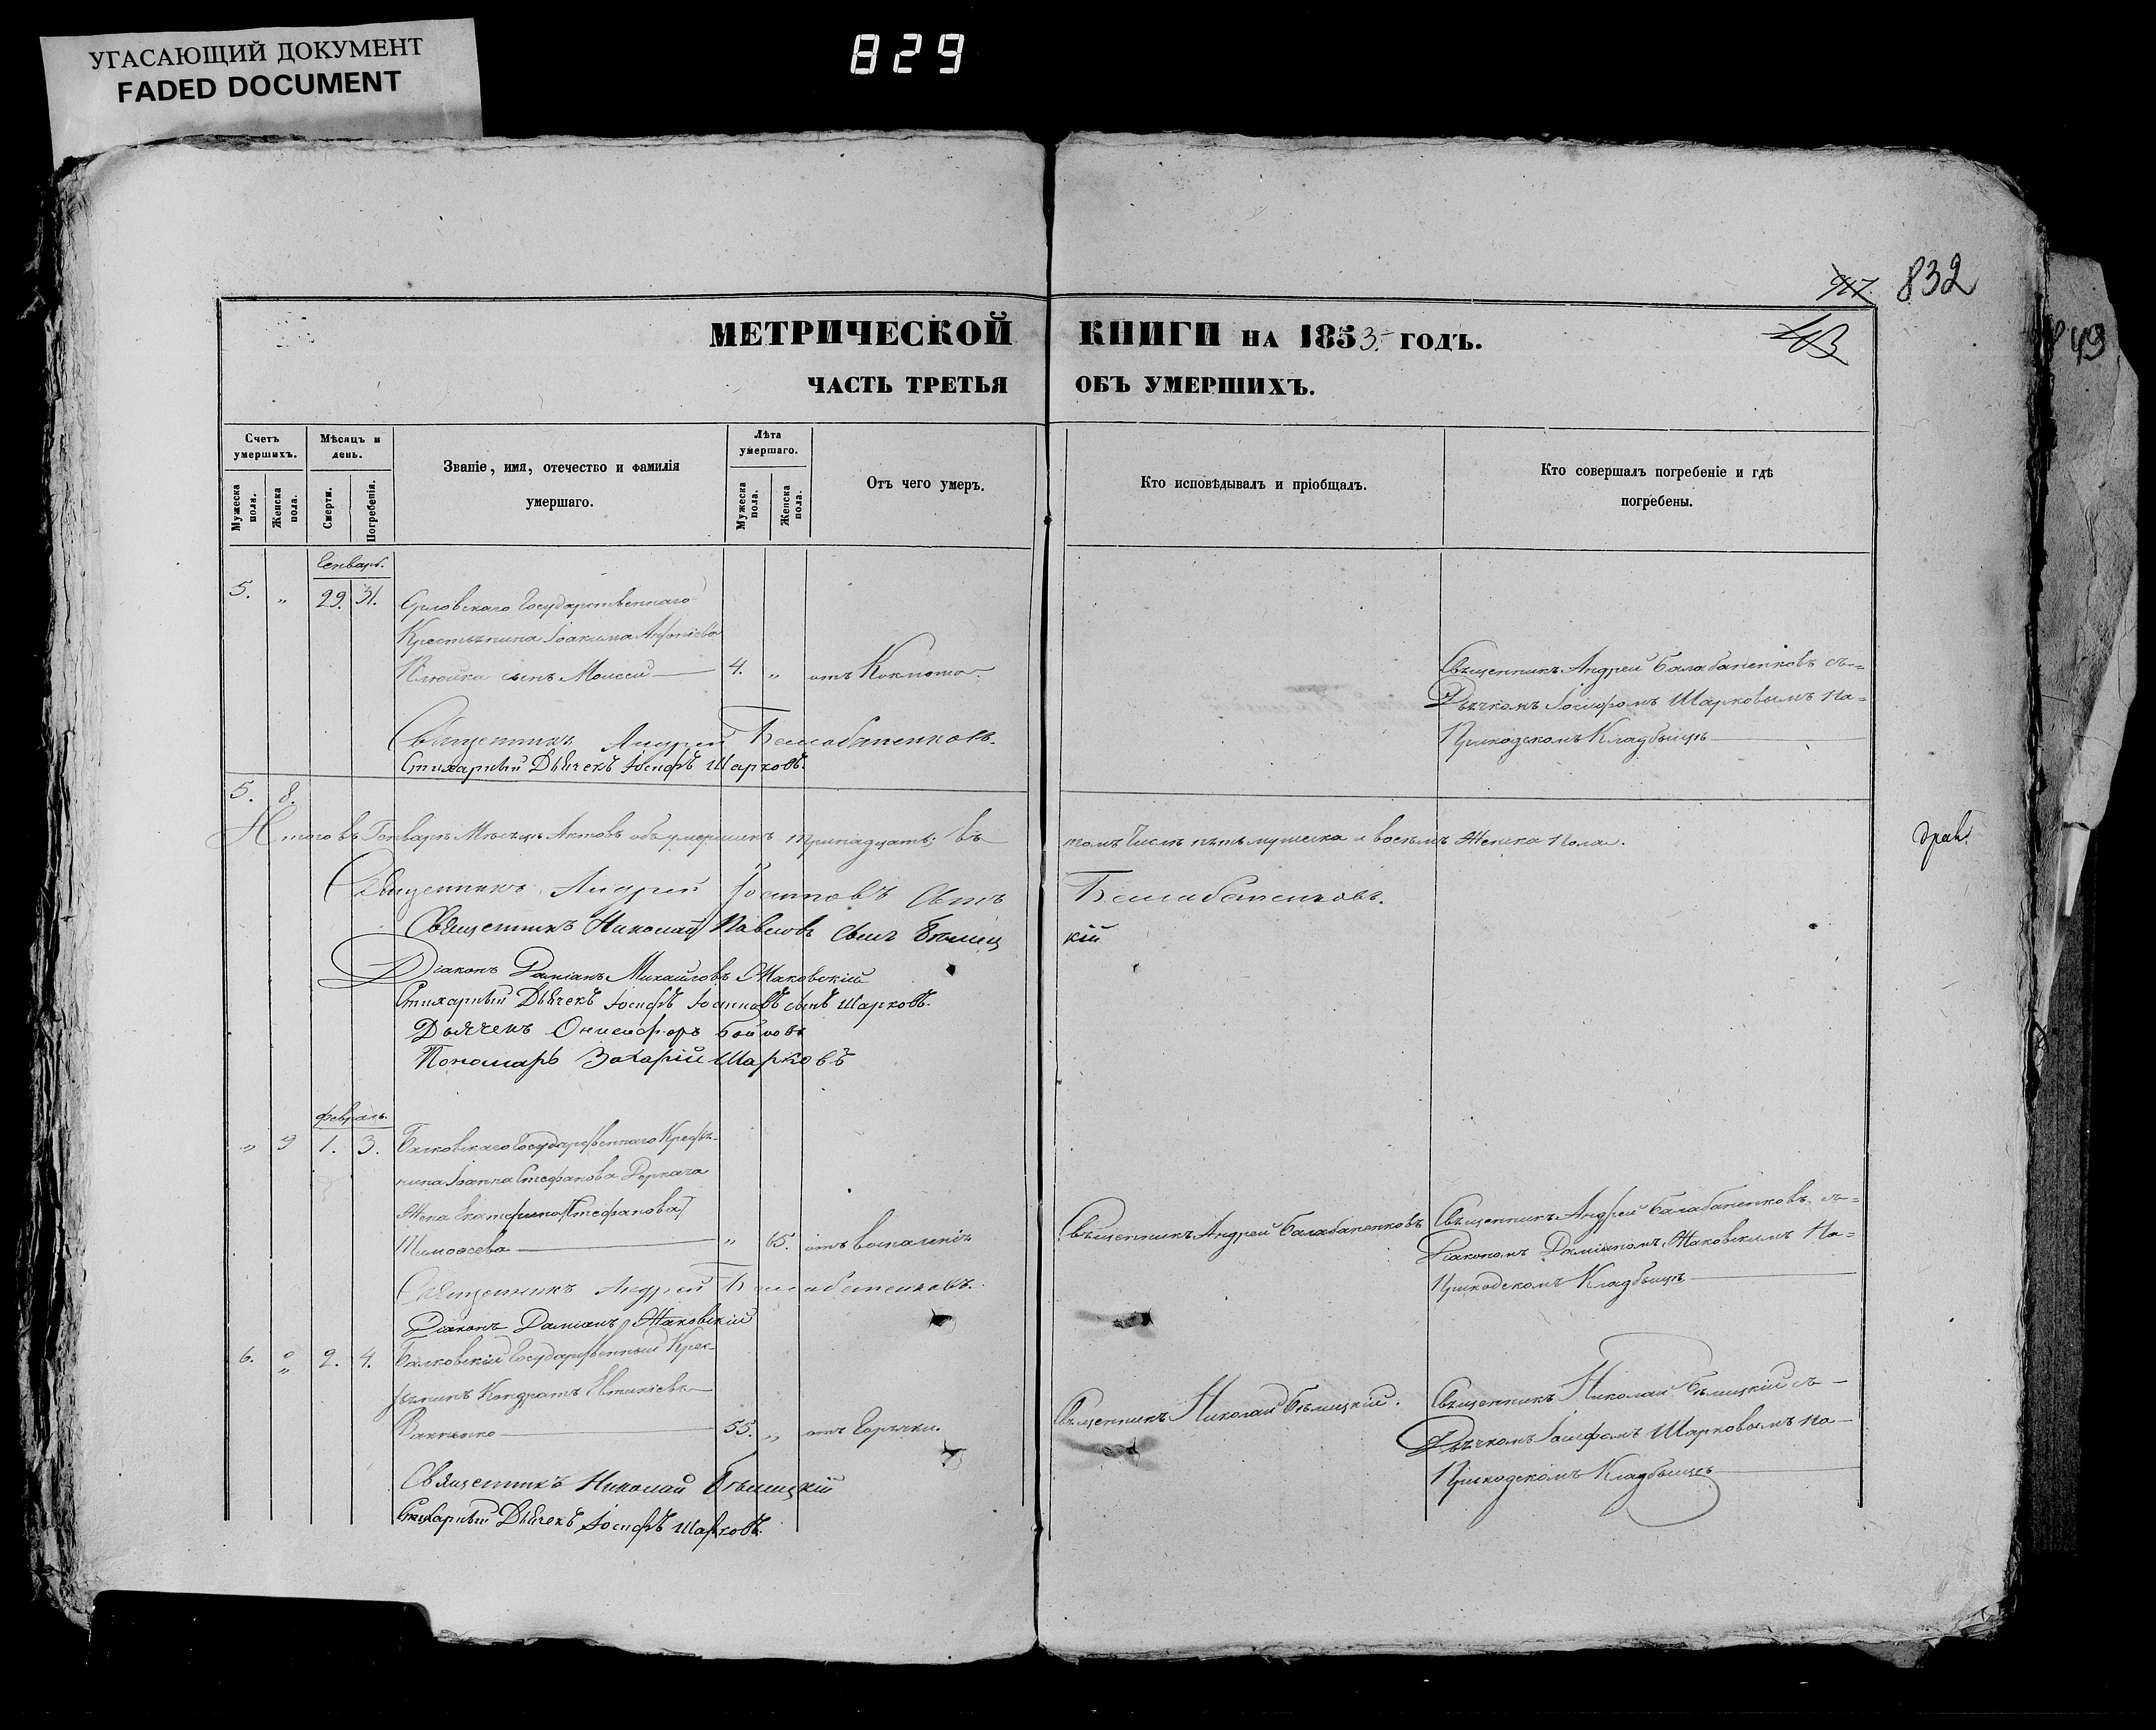 УГАСАЮЩИЙ ДОКУМЕНТ
FADED DOCUMENT
829
832
43
49
МЕТРИЧЕСКОЙ КНИГИ НА 1853. ГОДЪ.
ЧАСТЬ ТРЕТЬЯ ОБЪ УМЕРШИХЪ.
Счетъ умершихъ.
Мужеска пола.
Женска пола.
Мѣсяцъ и день.
Смерти.
Погребенія.
Званіе, имя, отечество и фамилія
умершаго.
Лѣта умершаго.
Мужеска пола.
Женска пола.
Отъ чего умеръ.
Кто исповѣдывалъ и пріобщалъ.
Кто совершалъ погребеніе и гдѣ
погребены.
Генварь.
5. „ 29. 31. Государственнаго
Крестьянина Іоакима
сынъ Моисей 4. „ отъ
Священникъ Андрей Балабаненковъ съ
Дьячкомъ Іосифомъ Шарковымъ на
Приходскомъ Кладбищѣ
Священникъ Андрей Балабаненковъ.
Стихарный Дьячекъ Іосифъ Шарковъ.
5. 8.
Итого въ Генварѣ Мѣсяцѣ Актовъ объ умершихъ тринадцать; въ томъ числѣ пять мужеска и восемь женска пола.
Священникъ Андрей Іосифовъ сынъ Балабаненковъ.
Священникъ Николай Павловъ сынъ Бѣлицкій
Діаконъ Даміанъ Михайловъ Маковскій
Стихарный Дьячекъ Іосифъ сынъ Шарковъ.
Дьячекъ Онисифоръ
Пономарь Захарій Шарковъ
Февраль.
„ 9 1. 3. Балковскаго Государственнаго Крестья-
нина Іоанна Стефанова Деркача
жена Екатерина Стефанова
Тимоѳеева „ 65. отъ воспаленія
Священникъ Андрей Балабаненковъ
Священникъ Андрей Балабаненковъ съ
Діакономъ Даміаномъ Маковскимъ на
Приходскомъ Кладбищѣ
Священникъ Андрей Балабаненковъ.
Діаконъ Даміанъ Маковскій
6. „ 2. 4. Балковскій Государственный Крес-
тьянинъ Кондратъ Евтихіевъ
55. „ отъ Горячки.
Священникъ Николай Бѣлицкій.
Священникъ Николай Бѣлицкій съ
Дьячкомъ Іосифомъ Шарковымъ на
Приходскомъ Кладбищѣ
Священникъ Николай Бѣлицкій
Стихарный Дьячекъ Іосифъ Шарковъ.